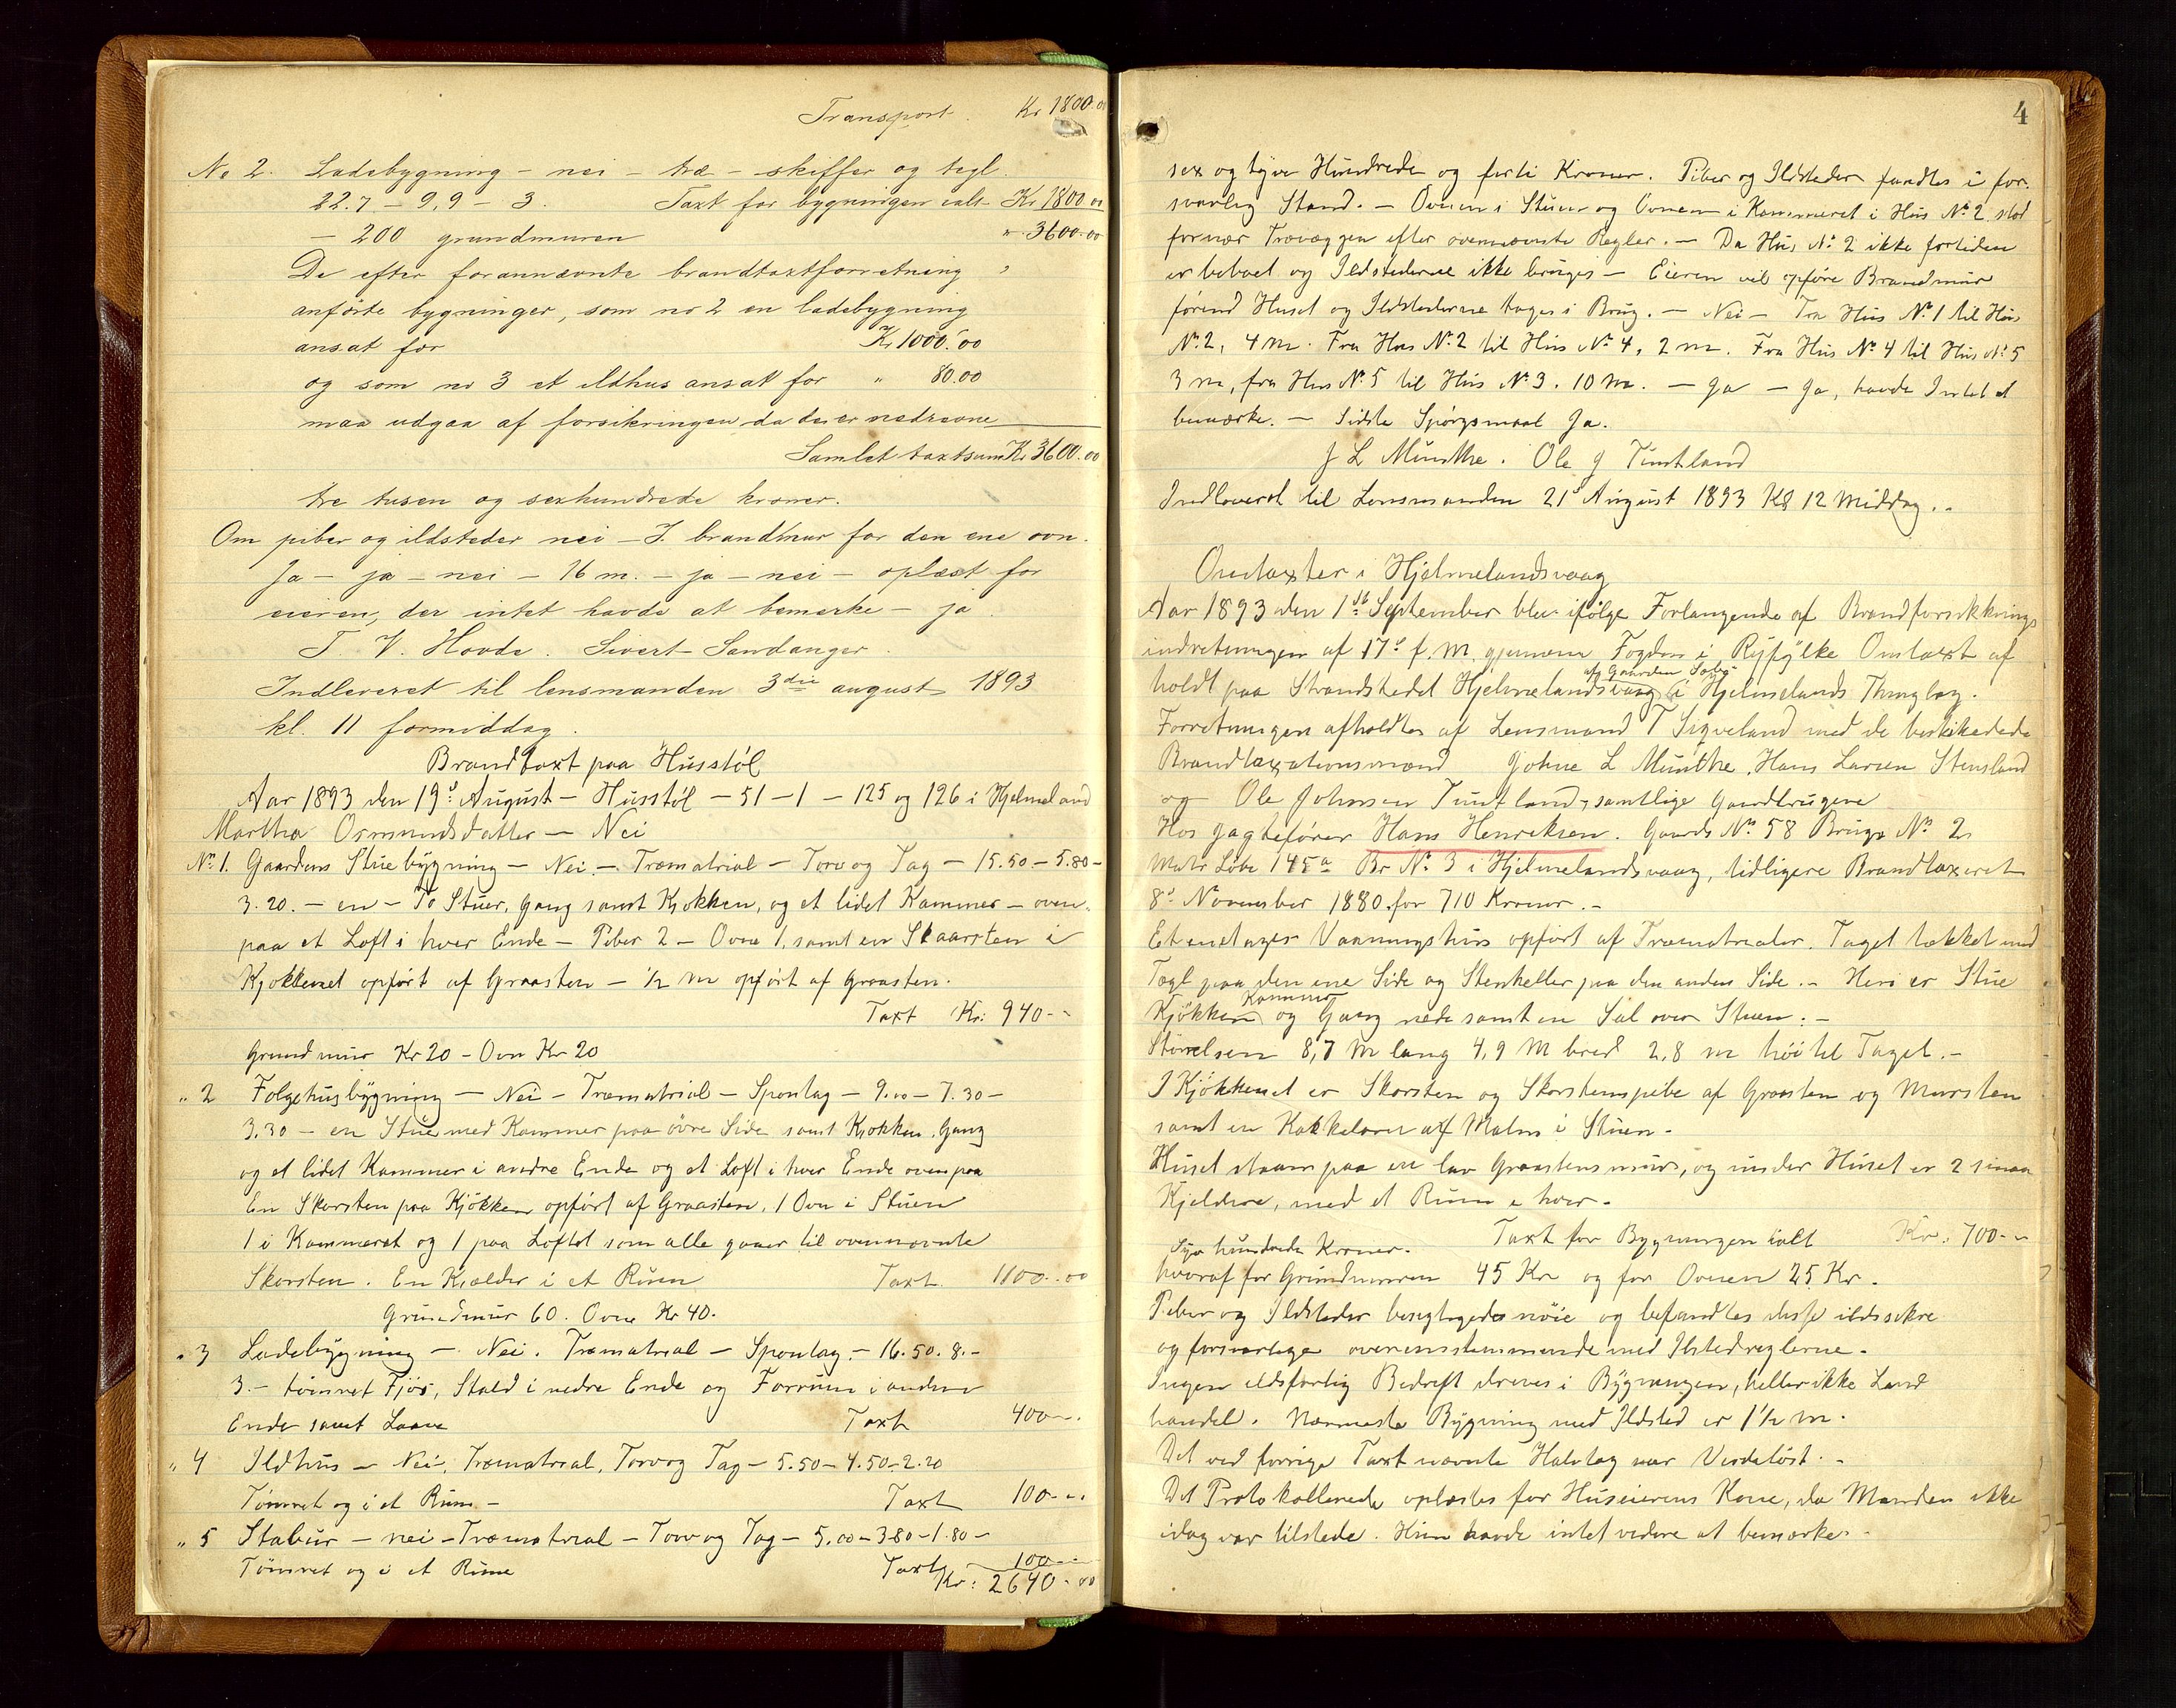 Transport. Kr 1800.00
No 2. Ladebygning – nei – træ – skiffer og tegl.
22.7 – 9,9 – 3. Taxt for bygningen ialt Kr 1800.00
– 200 grundmuren " 3600.00
De efter forannævnte brandtaxtforretning
anførte bygninger, som no 2 en ladebygning
ansat for Kr 1000.00
og som no 3 et ildhus ansat for " 80.00
maa udgaa af forsikringen da de er nedrevne
Samlet taxtsum Kr 3600.00
tre tusen og sexhundrede kroner.
Om piber og ildsteder nei – J. brandmur for den ene ovn.
Ja – ja – nei – 16 m. – ja – nei – oplæst for
eieren, der intet havde at bemerke – ja.
T. V. Hovde. Sivert Sandanger.
Indleveret til lensmanden 3die august 1893
kl. 11 formiddag.
Brandtaxt paa Husstøl
Aar 1893 den 19de August – Husstøl – 51 – 1 – 125 og 126 i Hjelmeland
Martha Osmundsdatter – Nei
No 1. Gaardens Stuebygning – Nei. – Træmatrial – Torv og Tag – 15.50 – 5.80 –
3.20. – en – To Stuer, Gang samt Kjøkken, og et lidet Kammer – oven
paa et Loft i hver Ende – Piber 2 – Ovne 1, samt en Skaarsten i
Kjøkkenet opført af Graasten – ½ m opført af Graasten.
Taxt Kr: 940 –
Grundmur Kr 20 – Ovn Kr 20
" 2 Følgehusbygning – Nei – Træmatrial – Spontag – 9.00 – 7.30 –
3.30 – en Stue med Kammer paa øvre Side samt Kjøkken, Gang
og et lidet Kammer i andre Ende og et Loft i hver Ende ovenpaa
En Skorsten paa Kjøkken opført af Graasten, 1 Ovn i Stuen
1 i Kammeret og 1 paa Loftet som alle gaaer til ovennævnte
Skorsten. En Kjælder i et Rum Taxt. 1100.00
Grundmur 60. Ovne Kr 40.
" 3 Ladebygning – Nei. Træmatrial – Spontag. – 16.50. 8. –
3. – tømret Fjøs, Stald i nedre Ende og Forrum i anden
Ende samt Laave Taxt 400 –
" 4 Ildhus – Nei, Træmatrial, Torv og Tag – 5.50 – 4.50 – 2.20
Tømret og i et Rum – Taxt 100 –
" 5 Stabur – nei – Træmatrial – Torv og Tag – 5.00 – 3.80 – 1.80 –
Tømret og i et Rum Taxt 100 –
Kr: 2640.00
4
sex og tyve Hundrede og førti Kroner. Piber og Ildsteder fandtes i for-
svarlig Stand. – Ovnen i Stuen og Ovnen i Kammeret i Hus No 2 stod
fornær Trævæggen efter ovennævnte Regler. – Da Hus No 2 ikke fortiden
er beboet og Ildstederne ikke bruges – Eieren vil opføre Brandmur
førend Huset og Ildstederne tages i Brug. – Nei – Fra Hus No 1 til Hus
No 2, 4 m. Fra Hus No 2 til Hus No 4, 2 m. Fra Hus No 4 til Hus No 5
3 m, fra Hus No 5 til Hus No 3. 10 m. – Ja – Ja, havde Intet at
bemærke. – Sidste Spørgsmaal Ja.
J L Munthe. Ole J Tuntland
Indleveret til Lensmanden 21de August 1893 Kl 12 Middag. –
Omtaxter i Hjelmelandsvaag
Aar 1893 den 1ste September blev ifølge Forlangende af Brandforsikkrings
indretningen af 17de f. M. gjennem Fogden i Ryfylke Omtaxt af
af Gaarden
holdt paa Strandstedet Hjelmelandsvaag i Hjelmelands Thinglag.
Forretningen afholdtes af Lensmand T Sigveland med de beskikkede
Brandtaxationsmænd Johne L Munthe, Hans Larsen Stensland
og Ole Johnsen Tuntland, samtlige Gaardbrugere
Hos Jagtefører Hans Henriksen. Gaards No 58 Brugs No 2
Matr Løbe 145a Br No 3 i Hjelmelandsvaag, tidligere Brandtaxeret
8de November 1880 for 710 Kroner. –
Et enetages Vaaningshus opført af Træmatrialer. Taget tækket med
Tegl paa den ene Side og Stenheller paa den anden Side. – Heri er Stue
Kammer
Kjøkken og Gang nede samt en Sal over Stuen. –
Størrelsen 8,7 M lang 4,9 M bred 2,8 m høi til Taget. –
I Kjøkkenet er Skorsten og Skorstenspibe af Graasten og Mursten
samt en Kakkelovn af Malm i Stuen –
Huset staar paa en lav Graastensmur, og under Huset er 2 smaa
Kjeldere, med et Rum i hver –
Taxt for Bygningen ialt Kr: 700 –
Syv hundrede Kroner –
hvoraf for Grundmuren 45 Kr og for Ovnen 25 Kr.
Piber og Ildsteder besigtigedes nøie og befandtes disse ildssikre
og forsvarlige overensstemmende med Ildstedreglerne –
Ingen ildsfarlig Bedrift drives i Bygningen, heller ikke Land
handel. Nærmeste Bygning med Ildsted er 1½ m.
Det ved forrige Taxt nævnte Halvtag var Værdiløst. –
Det Protokollerede oplæstes for Huseierens Kone, da Manden ikke
idag var tilstede. Hun havde intet videre at bemærke –